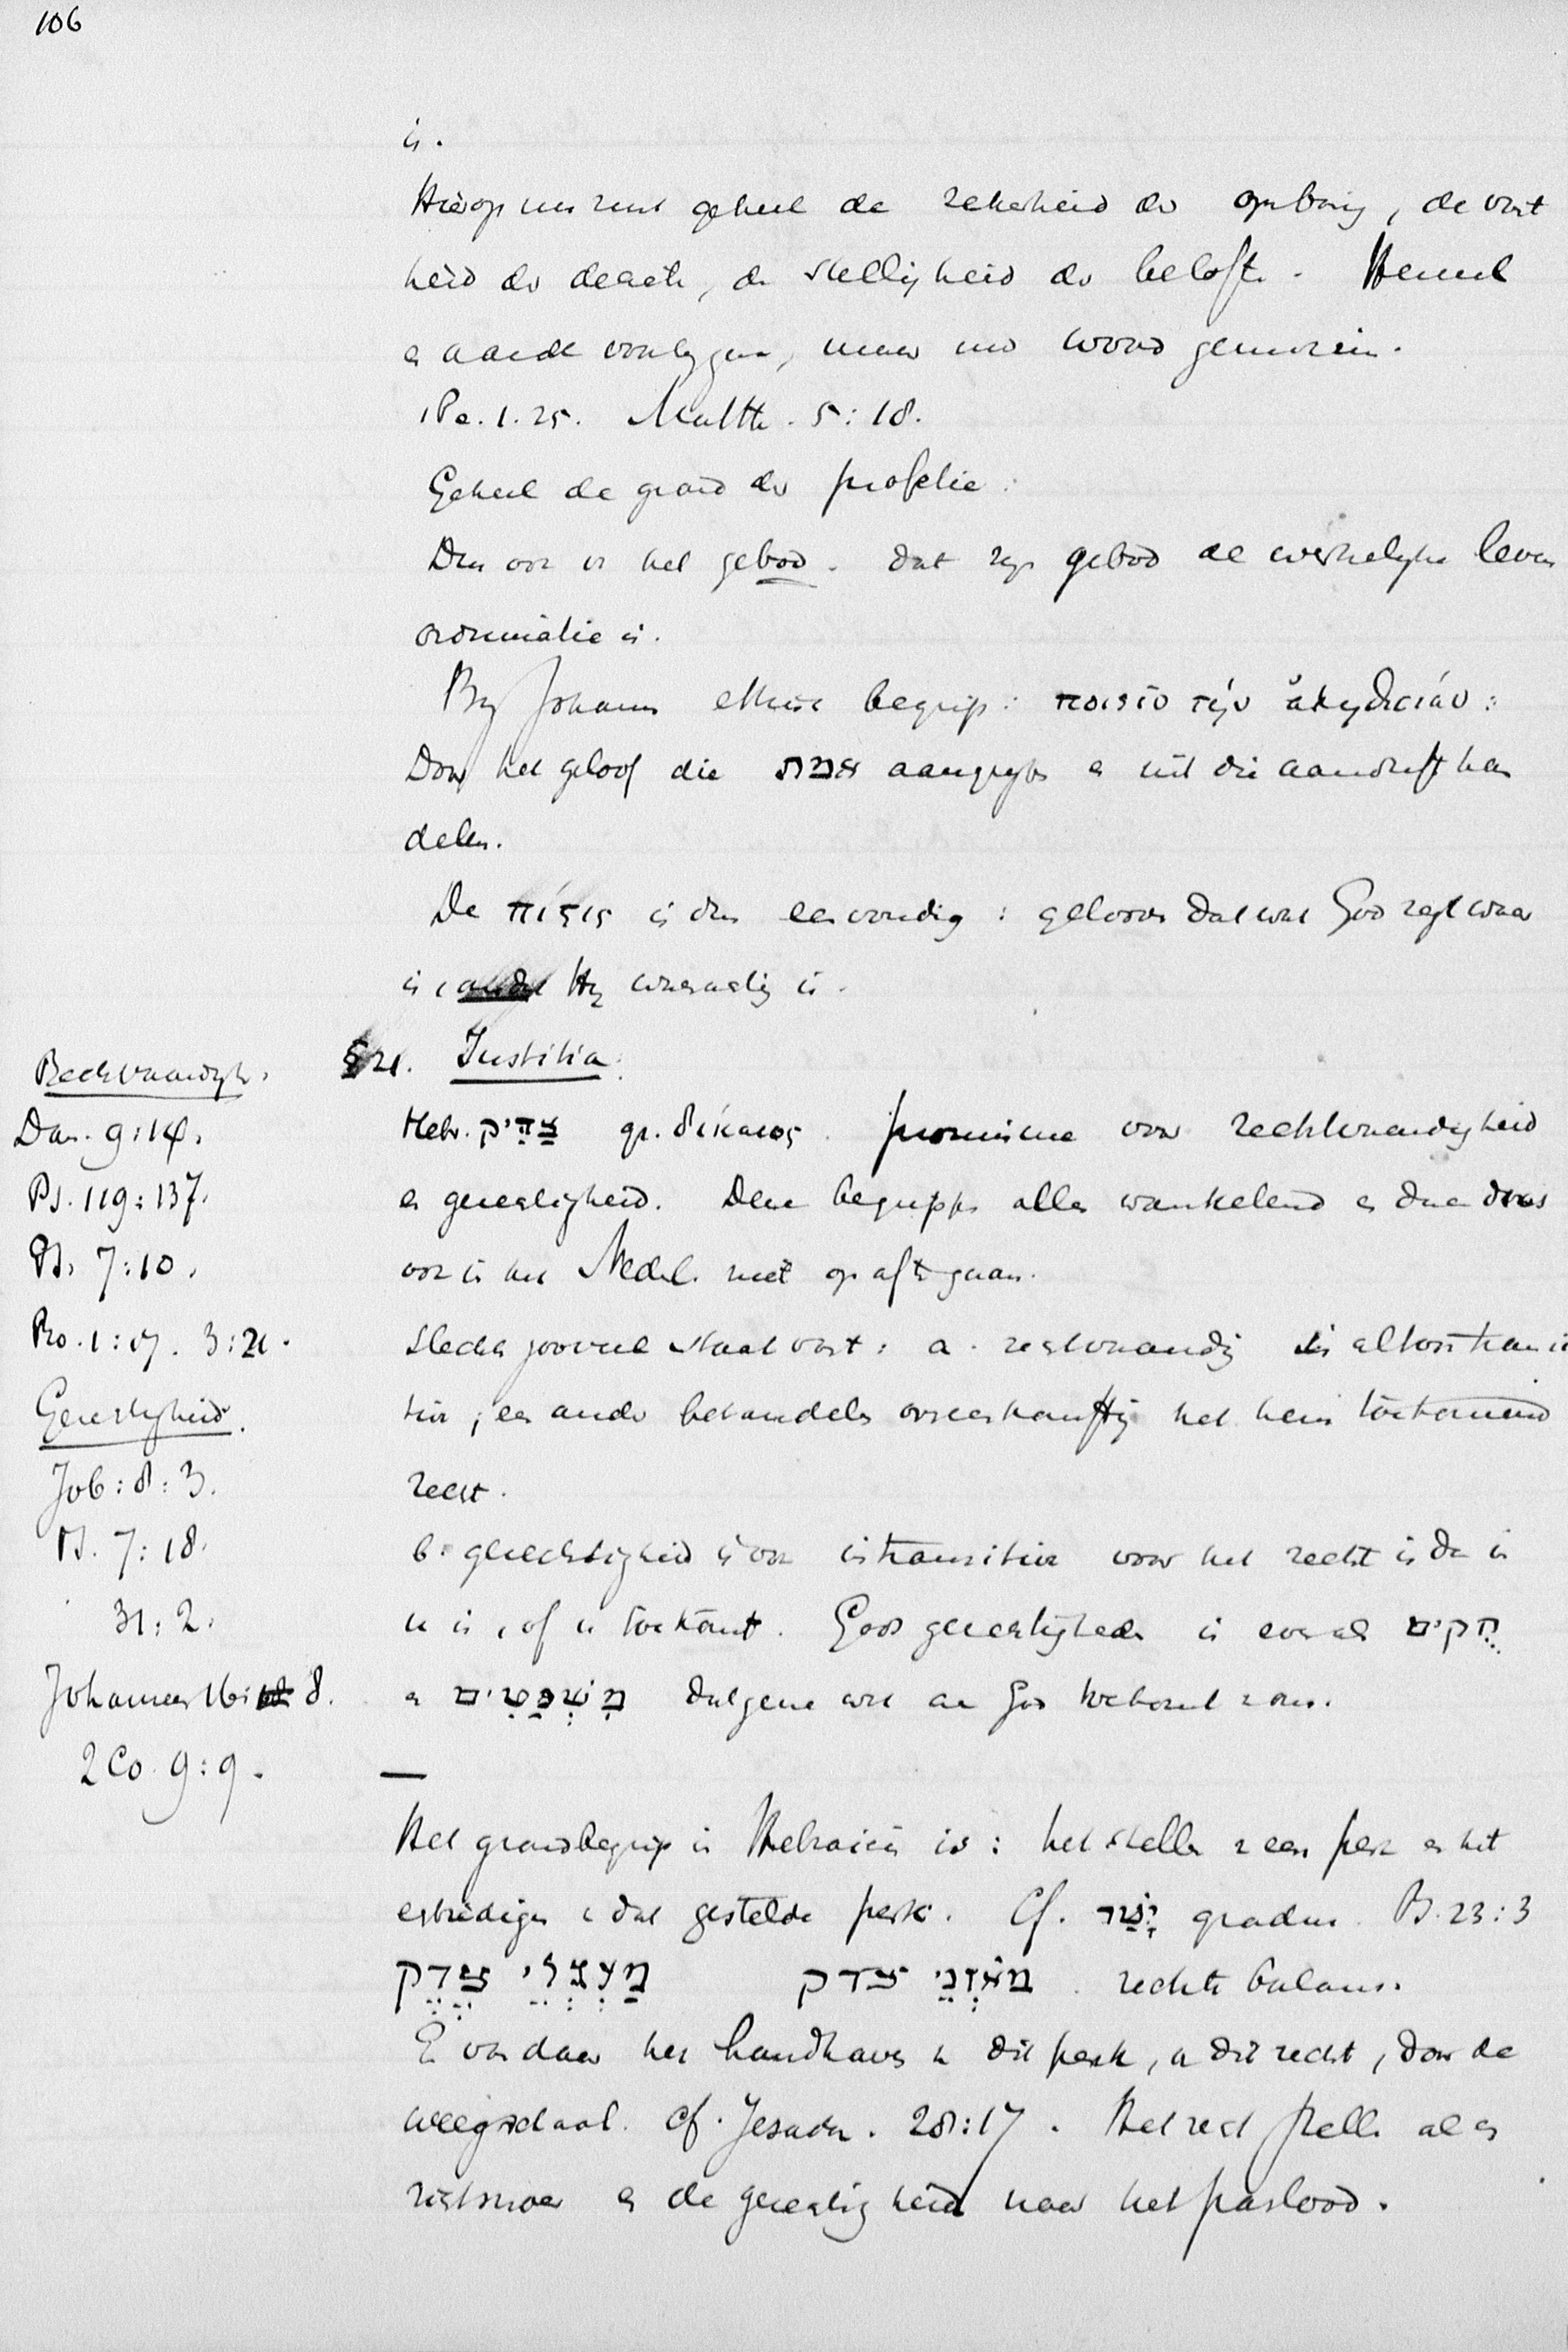 106
is.
Hierop nu rust geheel de zekerheid der openbaring, de vast
heid der decreten, de stelligheid der belofte. Hemel
en aarde voorbijgaan, maar mijn woord geenszins.
1 Pe. 1.25. Matth. 5:18.
Geheel de grond der profetie.
Dan ook is het gebod. dat zijn gebod de werkelijke levens
ordinantie is.
By Johannes ethisch begrip: ποιεῖν τήν ἀληθείαν:
Door het geloof die אמת aangrijpen en uit die aandrift han
delen.
De πίστις is dus eenvoudig: gelooven dat wat God zegt waar
is, Hy waarachtig is.
§21. Justitia.
Hebr. צַדִּיק gr. δίκαιος. promiscue voor rechtvaardigheid
en gerechtigheid. Deze begrippen alle wankelend en dus
ook in het Nederl. niet op af te gaan.
Slechts zooveel staat vast: a. rechtvaardig is altoos transi
tief; een ander behandelen overeenkomstig het hem toekomend
recht.
b. gerechtigheid is ook intransitief voor het recht
is, of toekomt. Gods gerechtigheden is evenals חקים
en מִשְׁפָּטִים datgene wat aan God toekomt van ons.
Rechtvaardigh.
Dan. 9:14.
Ps. 119:137.
Ps. 7:10.
Ro. 1:17. 3:21.
Gerechtigheid.
Job: 8:3.
Ps. 7:18.
31:2.
Johannes 16: 8.
2 Co. 9:9.
—
Het grondbegrip in Hebraicis is: het stellen van een perk en het
eerbiedigen van dat gestelde perk. Cf. gradus. Ps. 23:3
מַעְגְּלֵי צֶדֶק מֹאזְנֵי צדק. rechte balans.
En van daar het handhaven van dit perk, van dit recht, door de
weegschaal. Cf. Jesaia. 28:17. Het recht stellen als een
richtsnoer en de gerechtigheid naar het paslood.